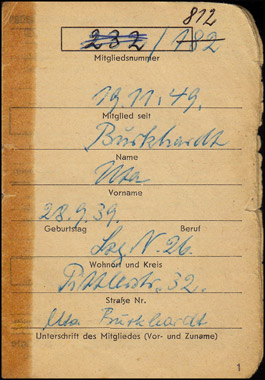 812
232 / 782
Mitgliedsnummer
19.11.49.
Mitglied seit
Burkhardt
Name
Uta
Vorname
28.9.39.
Geburtstag Beruf
Lpzg. N. 26.
Wohnort und Kreis
Pittlerstr. 32.
Straße Nr.
Uta Burkhardt
Unterschrift des Mitgliedes (Vor- und Zuname)
1